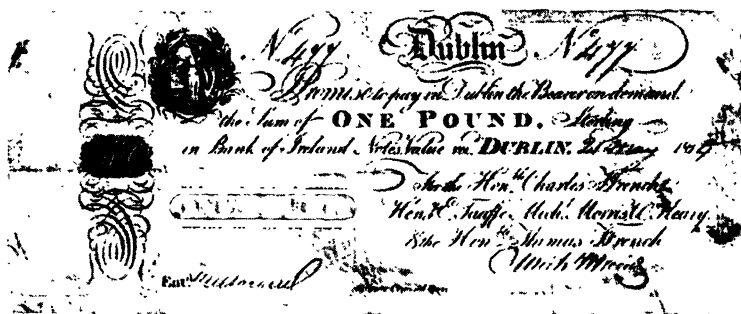 Nº 477 Dublin Nº 477
I Promise to pay in Dublin the Bearer on demand
the Sum of ONE POUND. Sterling
in Bank of Ireland Notes Value in DUBLIN.
For the Honble Charles Ffrench
Hon. E. Taaffe Morris C. Heary
& the Honble Thomas Ffrench
Entd